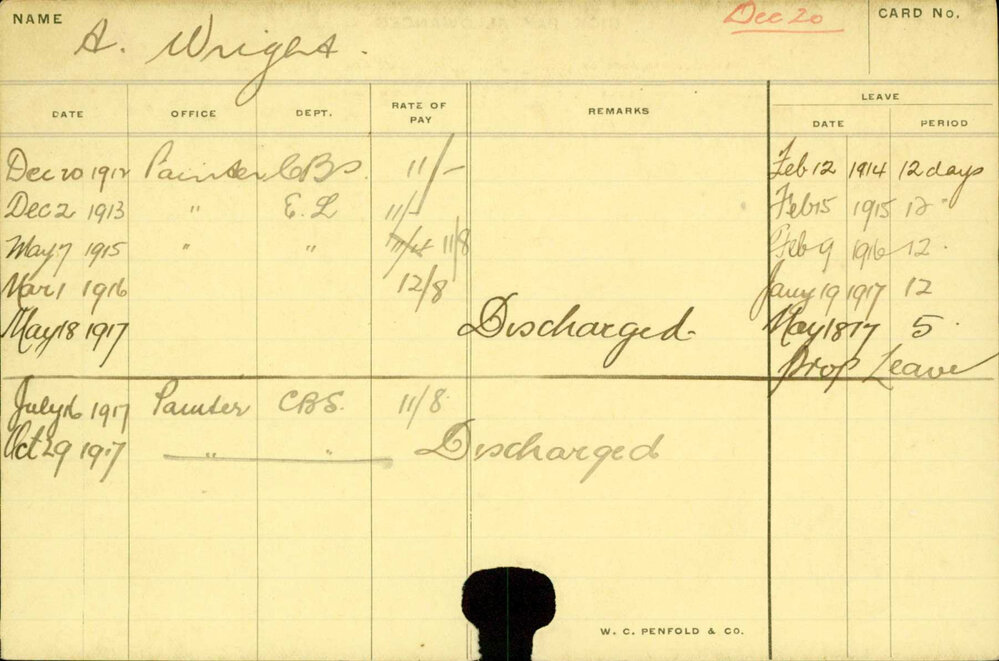 NAME
A. Wright.
Dec 20
CARD No.
DATE OFFICE DEPT. RATE OF PAY REMARKS LEAVE
DATE PERIOD
Dec 20 1912 Painter CBS. 11/- Feb 12 1914 12 days
Dec 2 1913 " E. L 11/- Feb 15 1915 12 "
May 7 1915 " " 11/8 Feb 9 1916 12.
Mar 1 1916 12/8 Jany 19 1917 12
May 18 1917 Discharged. May 18 17 5.
Prop Leave
July 16 1917 Painter CBS. 11/8.
Oct 29 1917 " " Discharged
W. C. PENFOLD & CO.